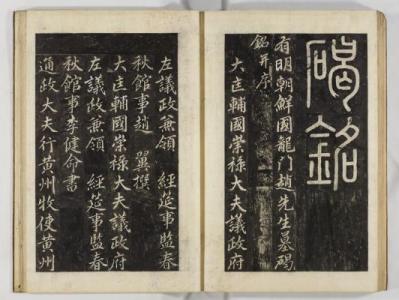 碣銘
有明朝鮮國龍门趙先生墓碣
銘并序
大匡輔國崇祿大夫議政府
左議政兼領　經筵事監春
秋館事趙　翼撰
大匡輔國崇祿大夫議政府
左議政兼領　經筵事監春
秋館事李健命書
通政大夫行黃州牧使黃州